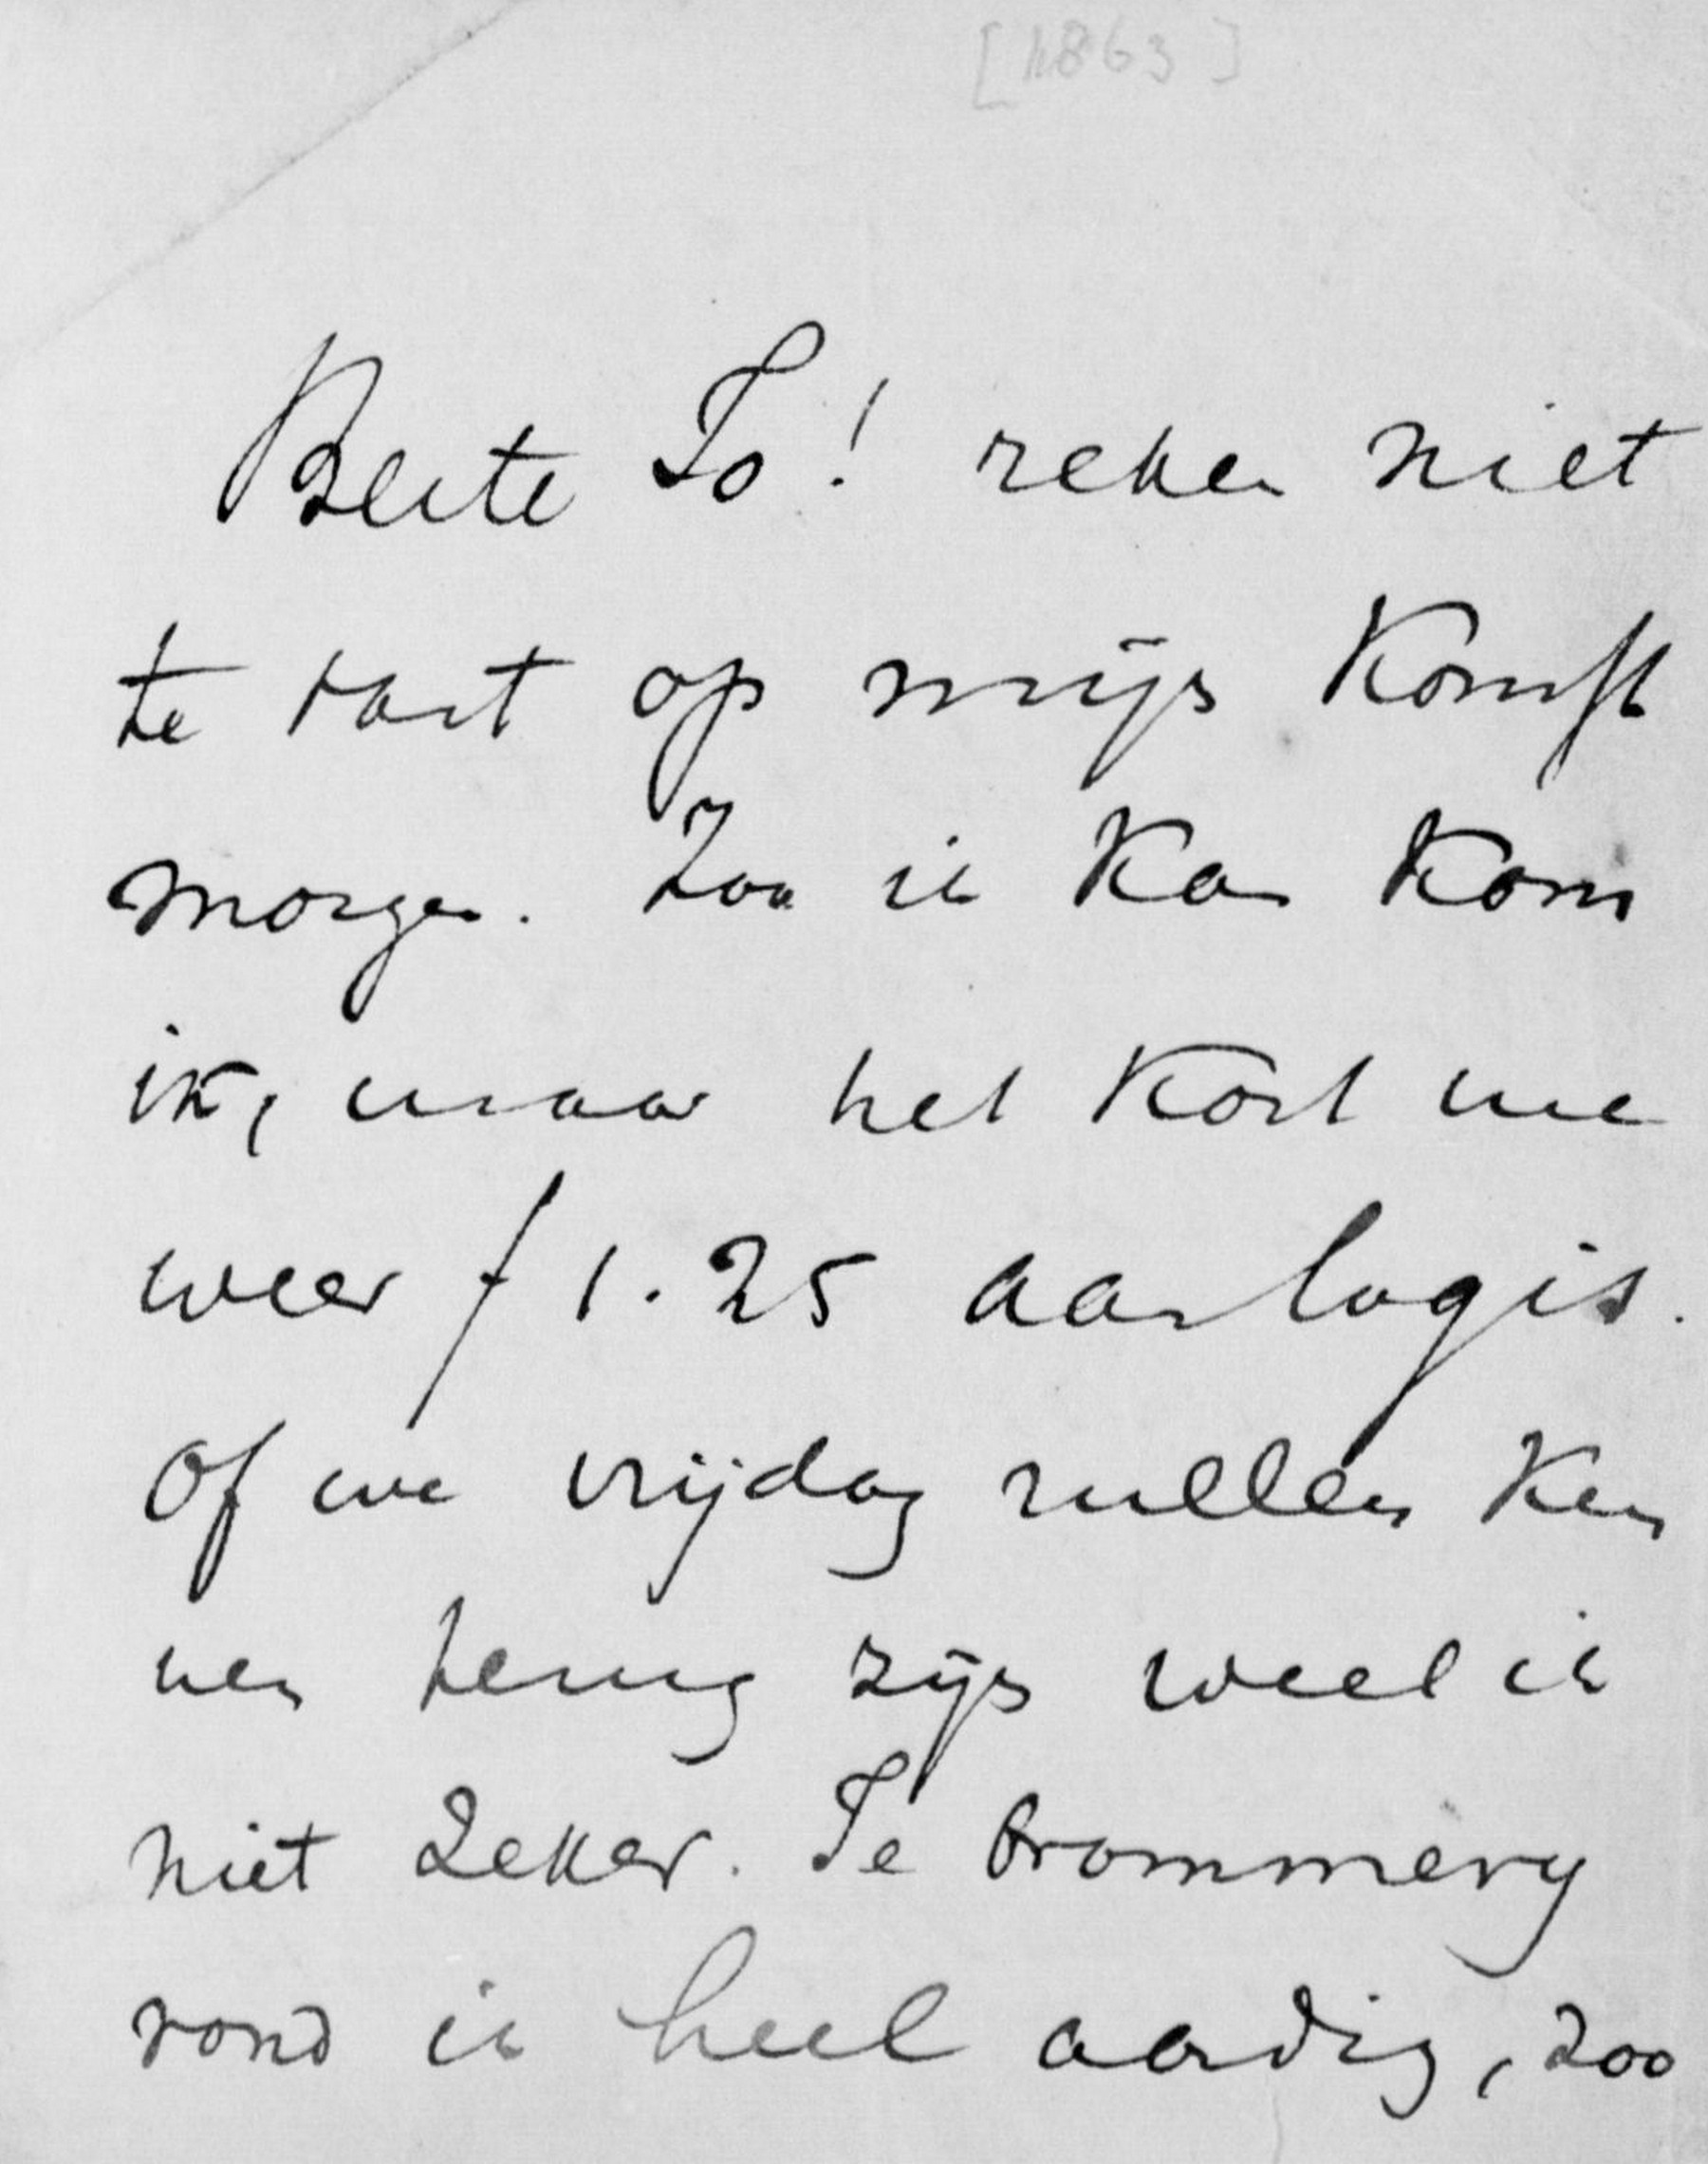 [1863]
Beste To! reken niet
te vast op mijn komst
morgen. Zoo ik kan kom
ik, maar het kost me
weer f 1.25 aan logis.
Of we vrijdag zullen kun
nen terug zijn weet ik
niet zeker. Je brommery
vond ik heel aardig, zoo